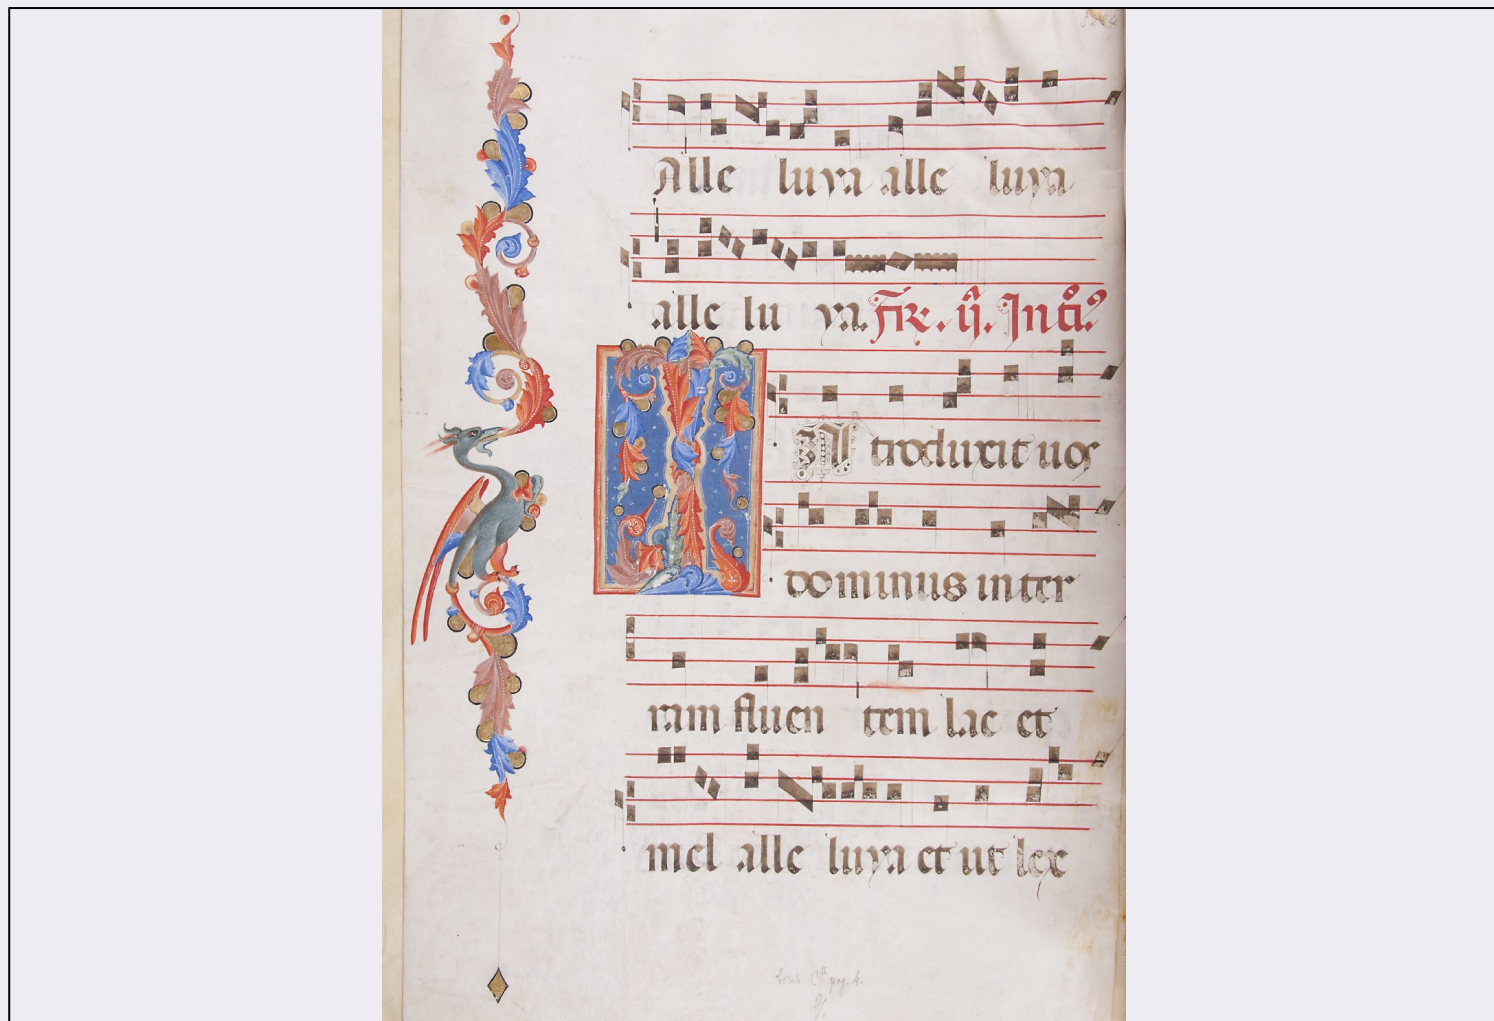 Alle luya alle luya
alle lu ya. Fr. ij. Int̄
IN troduxit uos
dominus in ter
ram fluen tem lac et
mel alle luya et ut lex